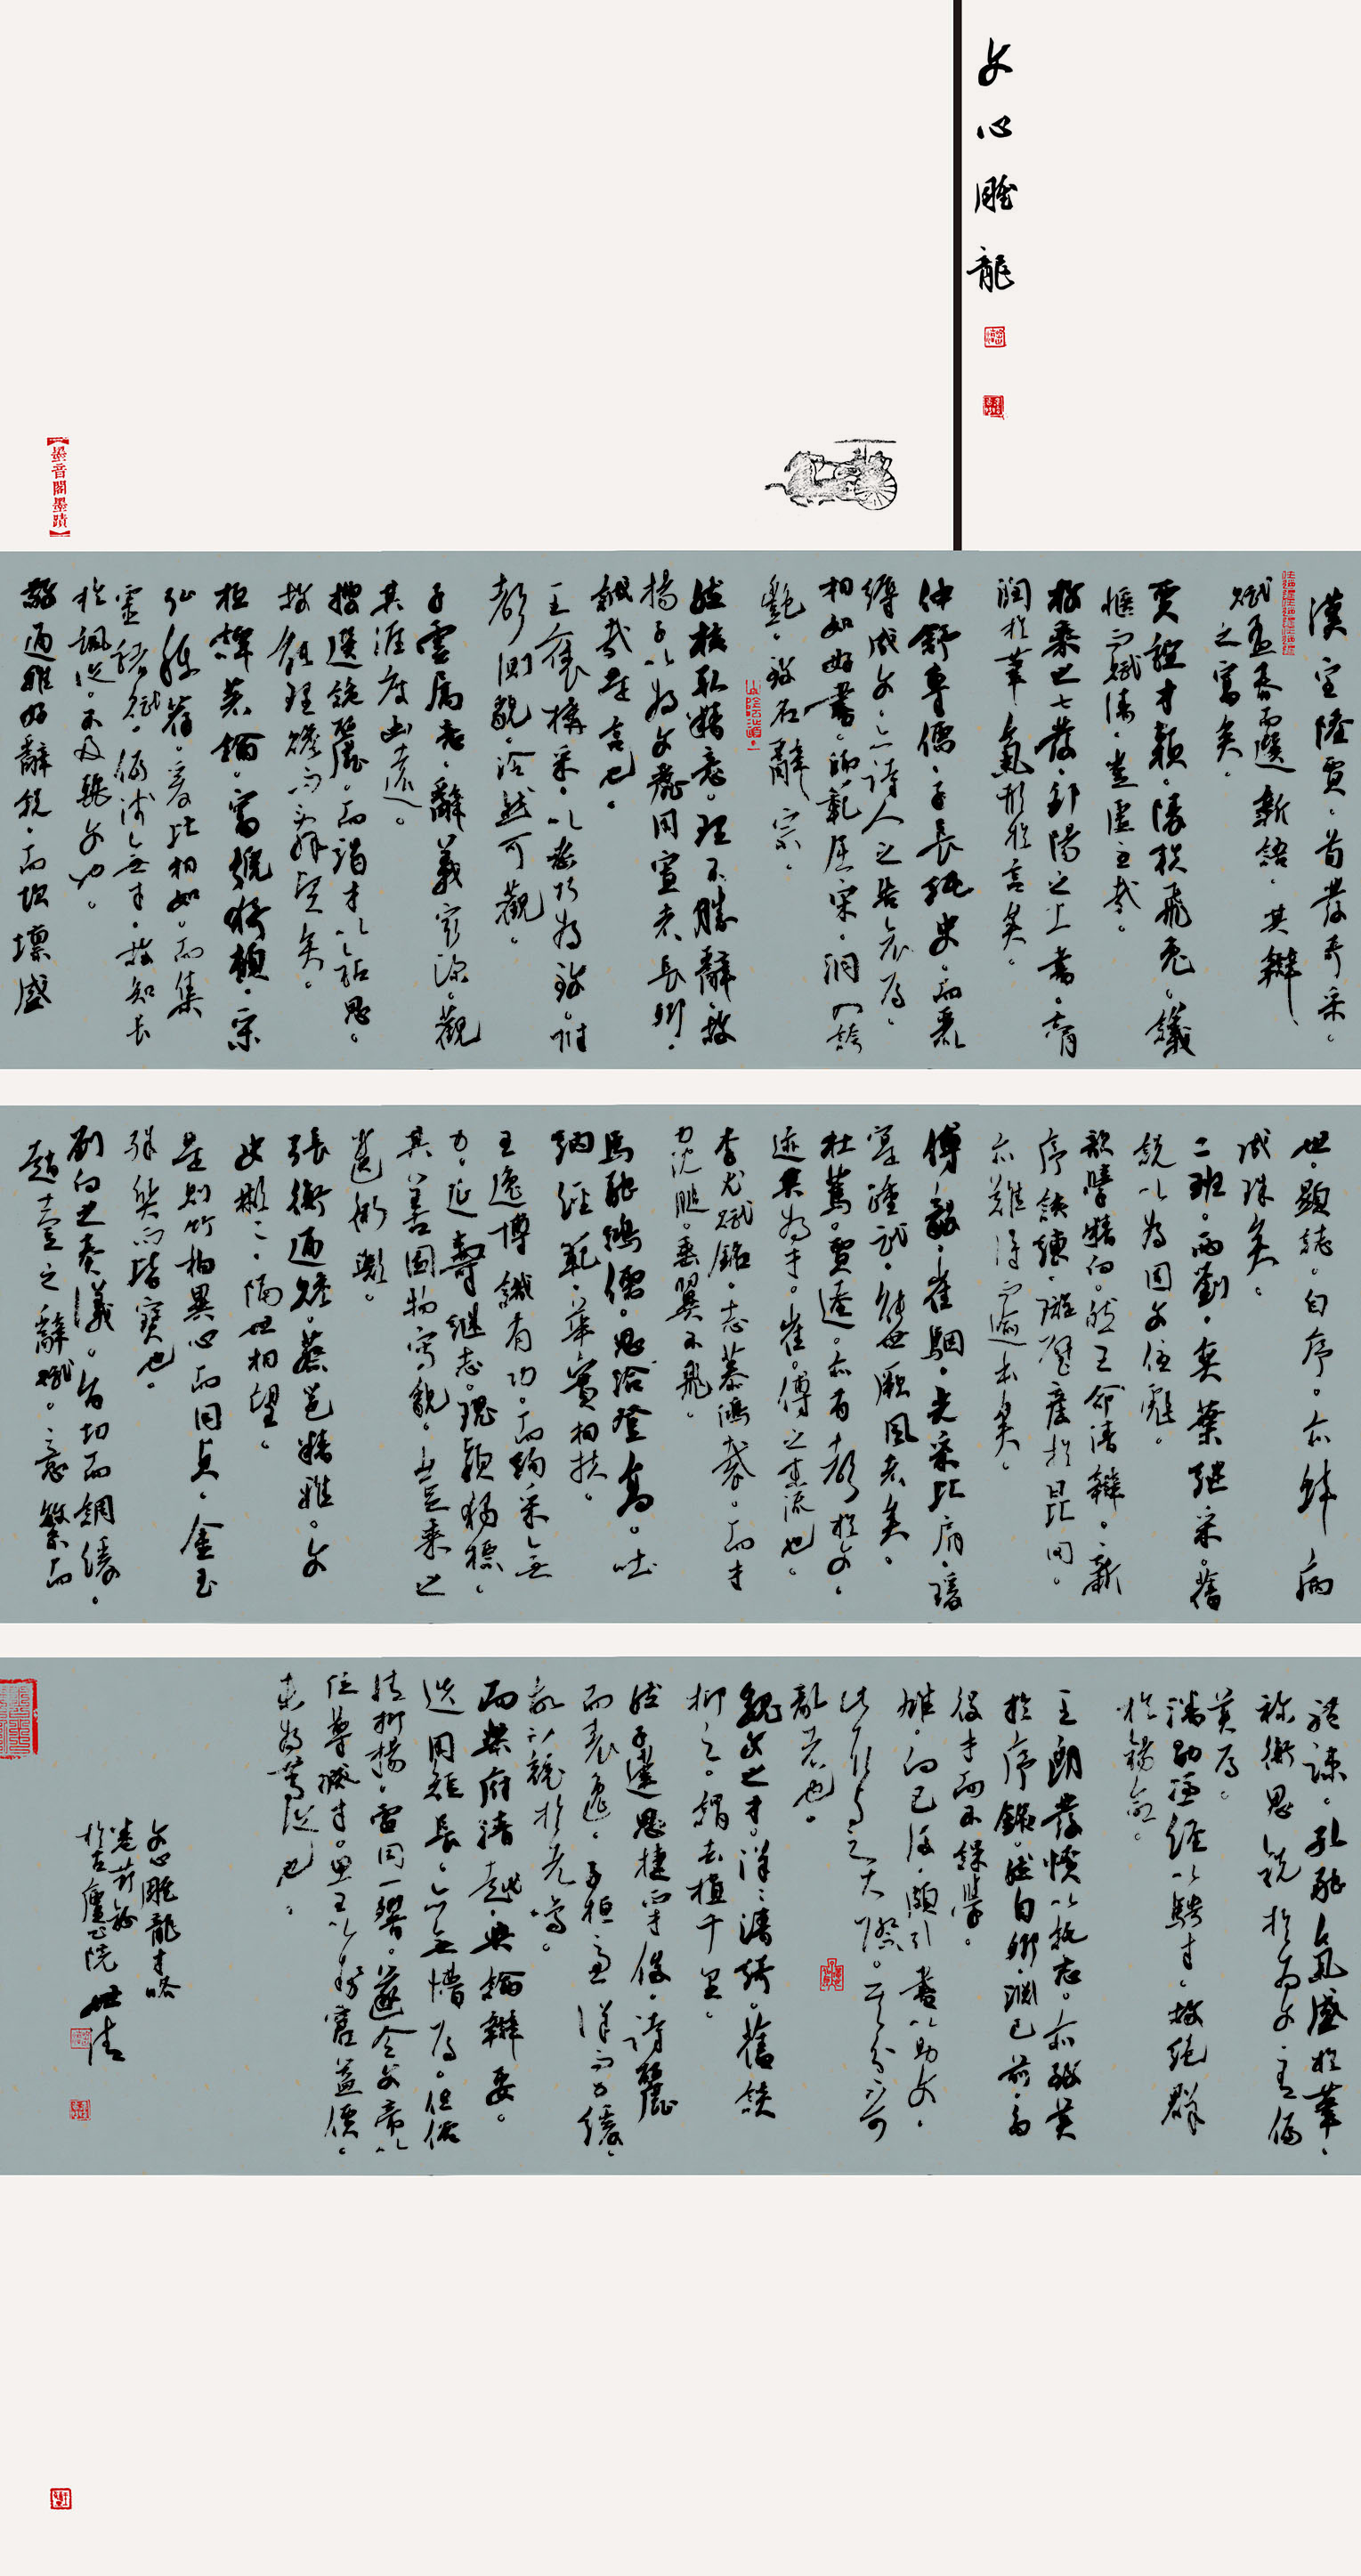 文心雕龍
墨音閣墨蹟
漢室陸賈。首發奇采。
賦孟春而選新語。其辯
之富矣。
賈誼才穎。陵軼飛兔。議
愜而賦清。豈虛至哉。
枚乘之七發。鄒陽之上書。膏
潤於筆。氣形於言矣。
仲舒專儒。子長純史。而麗
縟成文。亦詩人之告哀焉。
相如好書。師範屈宋。洞入誇
艷。致名辭宗。
然核取精意。理不勝辭。故
揚子以為文麗用寡者長卿。
誠哉是言也。
王褒構采。以密巧為致。附
聲測貌。泠然可觀。
子雲屬意。辭義最深。觀
其涯度幽遠。
搜選詭麗。而竭才以鑽思。
故能理贍而辭堅矣。
桓譚著論。富號猗頓。宋
弘稱薦。爰比相如。而集
靈諸賦。偏淺無才。故知長
於諷論。不及麗文也。
敬通雅好辭說。而坎壈盛
世。顯志。自序。亦蚌病
成珠矣。
二班。兩劉。奕葉繼采。舊
說以為固文優彪。
歆學精向。然王命清辯。新
序該練。璿璧產於昆岡。
亦難得而踰本矣。
傅毅。崔駰。光采比肩。瑗
寔踵武。能世厥風者矣。
杜篤。賈逵。亦有聲於文。
跡其為才。崔。傅之末流也。
李尤賦銘。志慕鴻裁。而才
力沈膇。垂翼不飛。
馬融鴻儒。思洽登高。吐
納經範。華實相扶。
王逸博識有功。而絢采無
力。延壽繼志。瑰穎獨標。
其善圖物寫貌。豈枚乘之
遺術歟。
張衡通贍。蔡邕精雅。文
史彬彬。隔世相望。
是則竹柏異心而同貞。金玉
殊質而皆寶也。
劉向之奏議。旨切而調緩。
趙壹之辭賦。意繁而
體疏。孔融氣盛於筆。
禰衡思銳於為文。有偏
美焉。
潘勖憑經以騁才。故絕群
於錫命。
王朗發憤以託志。亦致美
於序銘。然自卿淵已前。多
役才而不課學。
雄向已後。頗引書以助文。
此取與之大際。其分不可
亂者也。
魏文之才。洋洋清綺。舊談
抑之。謂去植千里。
然子建思捷而才儁。詩麗
而表逸。子桓慮詳而力緩。
故不競於先鳴。
而樂府清越。典論辯要。
迭用短長。亦無懵焉。但俗
情抑揚。雷同一響。遂令文帝以
位尊減才。思王以勢窘益價。
未為篤論也。
文心雕龍才略
世清